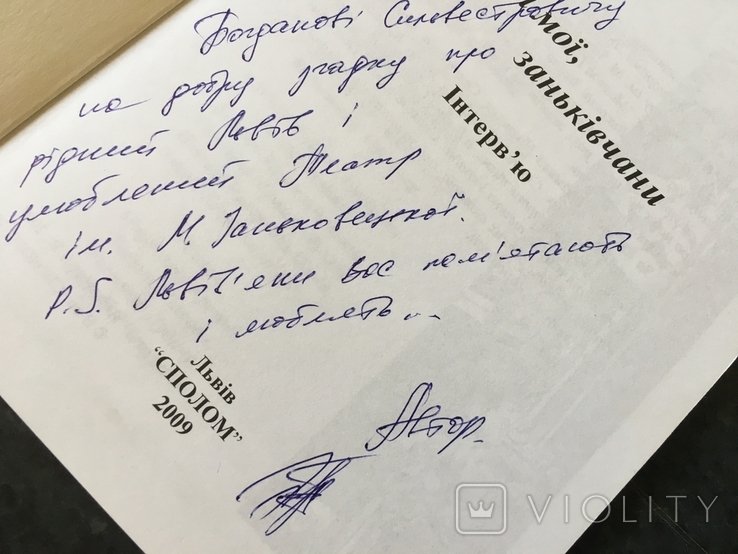 Богданові Сильвестровичу
на добру згадку про
рідний Львів і
улюблений театр
ім. М. Заньковецької.
P.S. Львів'яни Вас пам'ятають
і люблять...
Автор.
мої,
заньківчани
Інтерв'ю
Львів
“СПОЛОМ”
2009
VIOLITY